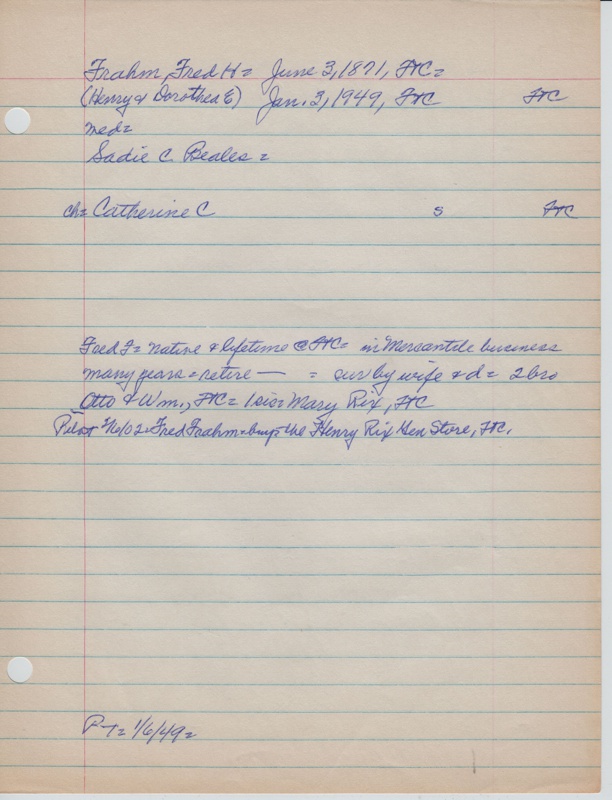 Frahm, Fred H = June 3, 1871, FTC =
(Henry & Dorothea E) Jan. 3, 1949, FTC FTC
med =
Sadie C. Beales =
ch = Catherine C S FTC
Fred F = native & lifetime @ FTC = in Mercantile business
many years = retire — = sur by wife & d = 2 bro
Otto & Wm., FTC = 1 sis = Mary Rix, FTC
Pilot Fred Frahm = buys the Henry Rix Gen Store, FTC.
P-T = 1/6/49 =